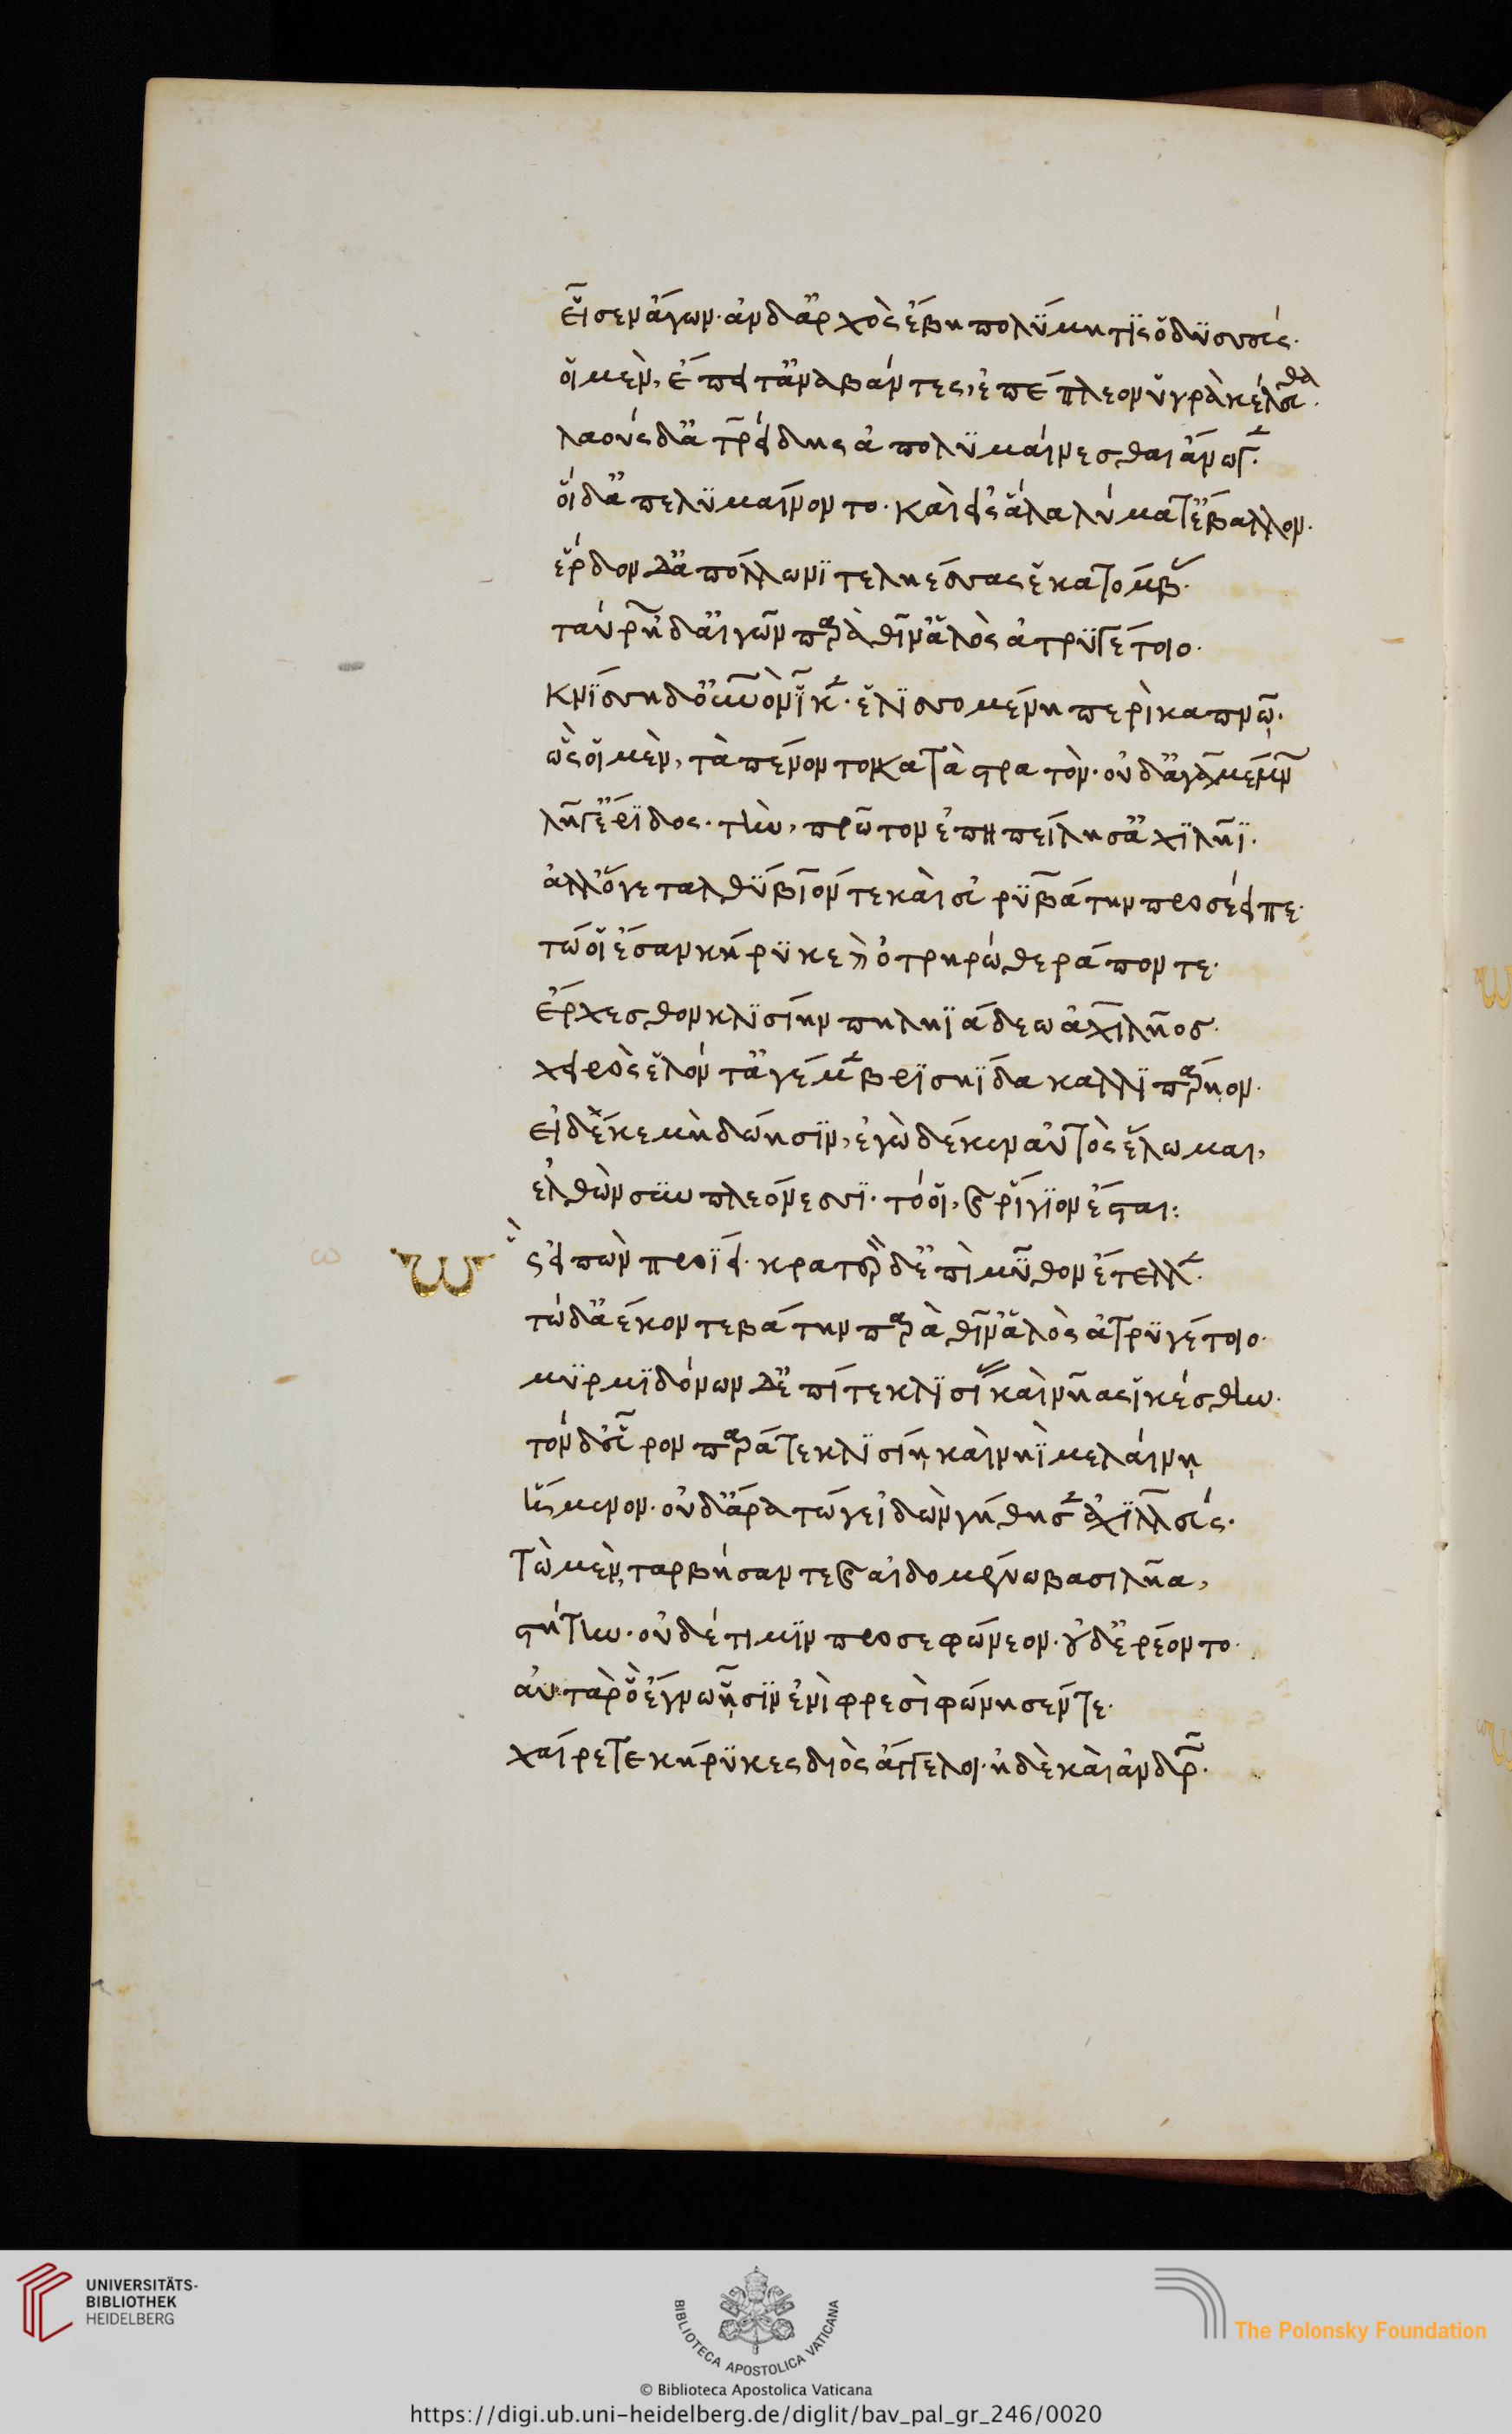 εἷσεν ἄγων· ἀν δ' ἄρχὸς ἔβη πολύμητις ὀδυσσεύς·
οἱ μὲν, ἔπειτ' ἀναβάντες, ἐπέπλεον ὑγρὰ κέλευθα·
λαοὺς δ' ἀτρείδης ἀπολυμαίνεσθαι ἄνωγεν·
οἱ δ' ἀπελυμαίνοντο· καὶ εἰς ἅλα λύματ' ἔβαλλον·
ἕρδον δ' ἀπόλλωνι τεληέσσας ἑκατόμβας·
ταύρων ἠδ' αἰγῶν παρὰ θῖν' ἁλὸς ἀτρυγέτοιο·
κνίσση δ' οὐρανὸν ἷκεν· ἑλισσομένη περὶ καπνῷ·
ὣς οἱ μὲν, τὰ πένοντο κατὰ στρατὸν· οὐδ' ἀγαμέμνων
λῆγ' ἔριδος· τὴν, πρῶτον ἐπηπείλησ' ἀχιλῆϊ·
ἀλλ' ὅγε ταλθύβιόν τε καὶ εὐρυβάτην προσέειπε·
τώ οἱ ἔσαν κήρυκε καὶ ὀτρηρὼ θεράποντε·
ἔρχεσθον κλισίην πηληϊάδεω ἀχιλῆος·
χειρὸς ἑλόντ' ἀγέμεν βρισηΐδα καλλιπάρηον·
εἰ δέ κε μὴ δώησιν, ἐγὼ δέ κεν αὐτὸς ἕλωμαι,
ἐλθὼν σὺν πλεόνεσσι· τό οἱ, καὶ ῥίγιον ἔσται:
ὣς εἰπὼν προΐει· κρατερὸν δ' ἐπὶ μῦθον ἔτελλεν·
τὼ δ' ἀέκοντε βάτην παρὰ θῖν' ἁλὸς ἀτρυγέτοιο·
μυρμιδόνων δ' ἐπί τε κλισίας καὶ νῆας ἱκέσθην·
τὸν δ' εὗρον παρά τε κλισίῃ καὶ νηῒ μελαίνῃ
ἥμενον· οὐδ' ἄρα τώ γε ἰδὼν γήθησεν ἀχιλλεύς·
τὼ μὲν, ταρβήσαντε καὶ αἰδομένω βασιλῆα,
στήτην· οὐδέ τι μιν προσεφώνεον· οὐδ' ἐρέοντο·
αὐτὰρ ὃ ἔγνω ᾗσιν ἐνὶ φρεσὶ φώνησέν τε·
χαίρετε κήρυκες διὸς ἄγγελοι· ἠδὲ καὶ ἀνδρῶν·
UNIVERSITÄTS-
BIBLIOTHEK
HEIDELBERG
BIBLIOTECA APOSTOLICA VATICANA
The Polonsky Foundation
© Biblioteca Apostolica Vaticana
https://digi.ub.uni-heidelberg.de/diglit/bav_pal_gr_246/0020